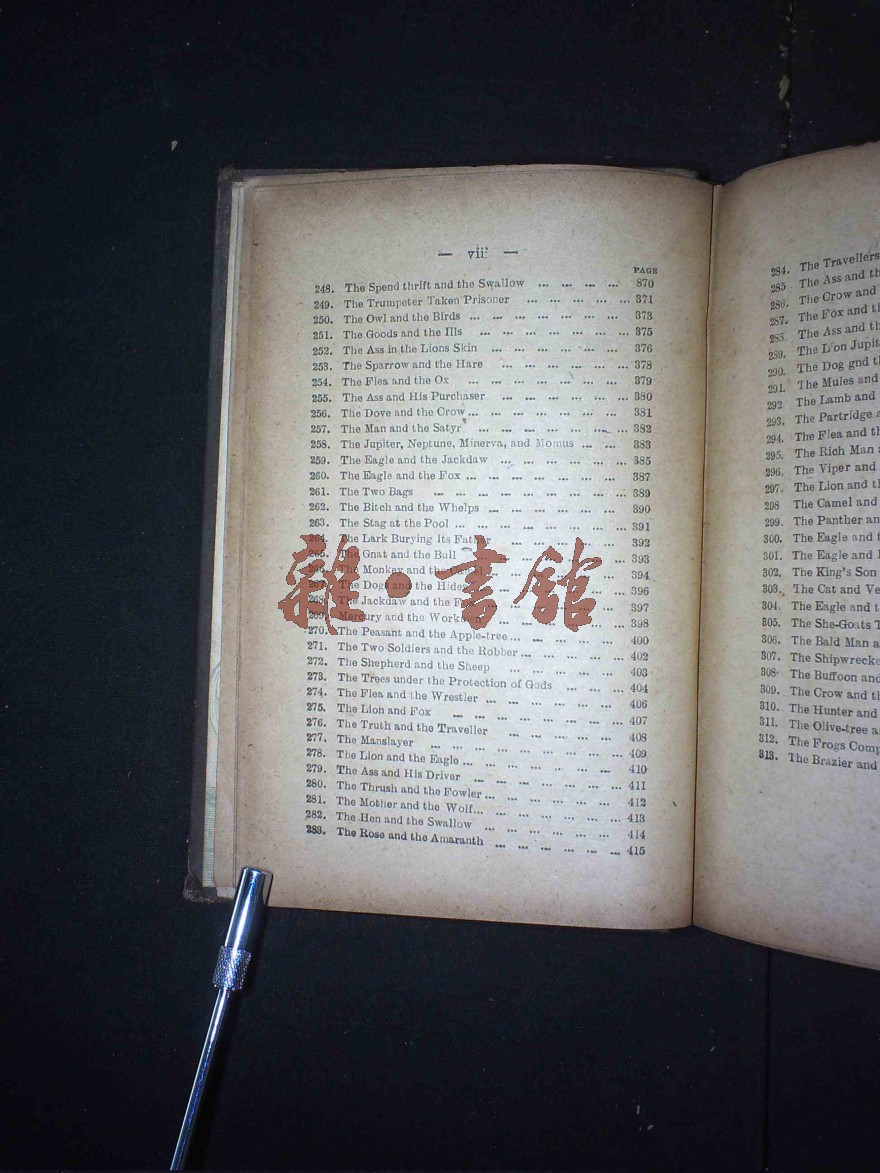 — vii —
PAGE
248. The Spend thrift and the Swallow ... ... ... ... 370
249. The Trumpeter Taken Prisoner ... ... ... ... ... 371
250. The Owl and the Birds ... ... ... ... ... ... ... 373
251. The Goods and the Ills ... ... ... ... ... ... ... 375
252. The Ass in the Lions Skin ... ... ... ... ... ... 376
253. The Sparrow and the Hare ... ... ... ... ... ... 378
254. The Flea and the Ox ... ... ... ... ... ... ... 379
255. The Ass and His Purchaser ... ... ... ... ... ... 380
256. The Dove and the Crow ... ... ... ... ... ... ... 381
257. The Man and the Satyr ... ... ... ... ... ... ... 382
258. The Jupiter, Neptune, Minerva, and Momus ... ... 383
259. The Eagle and the Jackdaw ... ... ... ... ... ... 385
260. The Eagle and the Fox ... ... ... ... ... ... ... 387
261. The Two Bags ... ... ... ... ... ... ... ... ... 389
262. The Bitch and the Whelps ... ... ... ... ... ... 390
263. The Stag at the Pool ... ... ... ... ... ... ... 391
264. The Lark Burying Its Father ... ... ... ... ... 392
265. The Gnat and the Bull ... ... ... ... ... ... 393
266. The Monkey and the Camel ... ... ... ... ... 394
267. The Dogs and the Hides ... ... ... ... ... 396
268. The Jackdaw and the Fox ... ... ... ... ... 397
269. Mercury and the Workmen ... ... ... ... ... 398
270. The Peasant and the Apple-tree ... ... ... ... ... 400
271. The Two Soldiers and the Robber ... ... ... ... ... 402
272. The Shepherd and the Sheep ... ... ... ... ... 403
273. The Trees under the Protection of Gods ... ... ... 404
274. The Flea and the Wrestler ... ... ... ... ... ... 406
275. The Lion and Fox ... ... ... ... ... ... ... 407
276. The Truth and the Traveller ... ... ... ... ... 408
277. The Manslayer ... ... ... ... ... ... ... ... 409
278. The Lion and the Eagle ... ... ... ... ... ... ... 410
279. The Ass and His Driver ... ... ... ... ... ... ... 411
280. The Thrush and the Fowler ... ... ... ... ... ... 412
281. The Mother and the Wolf ... ... ... ... ... ... ... 413
282. The Hen and the Swallow ... ... ... ... ... ... 414
283. The Rose and the Amaranth ... ... ... ... ... ... 415
雜·書館
284. The Travellers
285 The Ass and th
286. The Crow and
287. The Fox and th
288. The Ass and th
289. The Lion Jupit
290. The Dog gnd th
291. The Mules and
292 The Lamb and
293. The Partridge a
294. The Flea and th
295. The Rich Man
296. The Viper and
297. The Lion and th
298 The Camel and
299. The Panther an
300. The Eagle and t
301. The Eagle and
302. The King's Son
303. The Cat and Ve
304. The Eagle and t
305. The She-Goats T
306. The Bald Man a
307. The Shipwrecke
308. The Buffoon and
309. The Crow and th
310. The Hunter and
311. The Olive-tree a
312. The Frogs Comp
313. The Brazier and